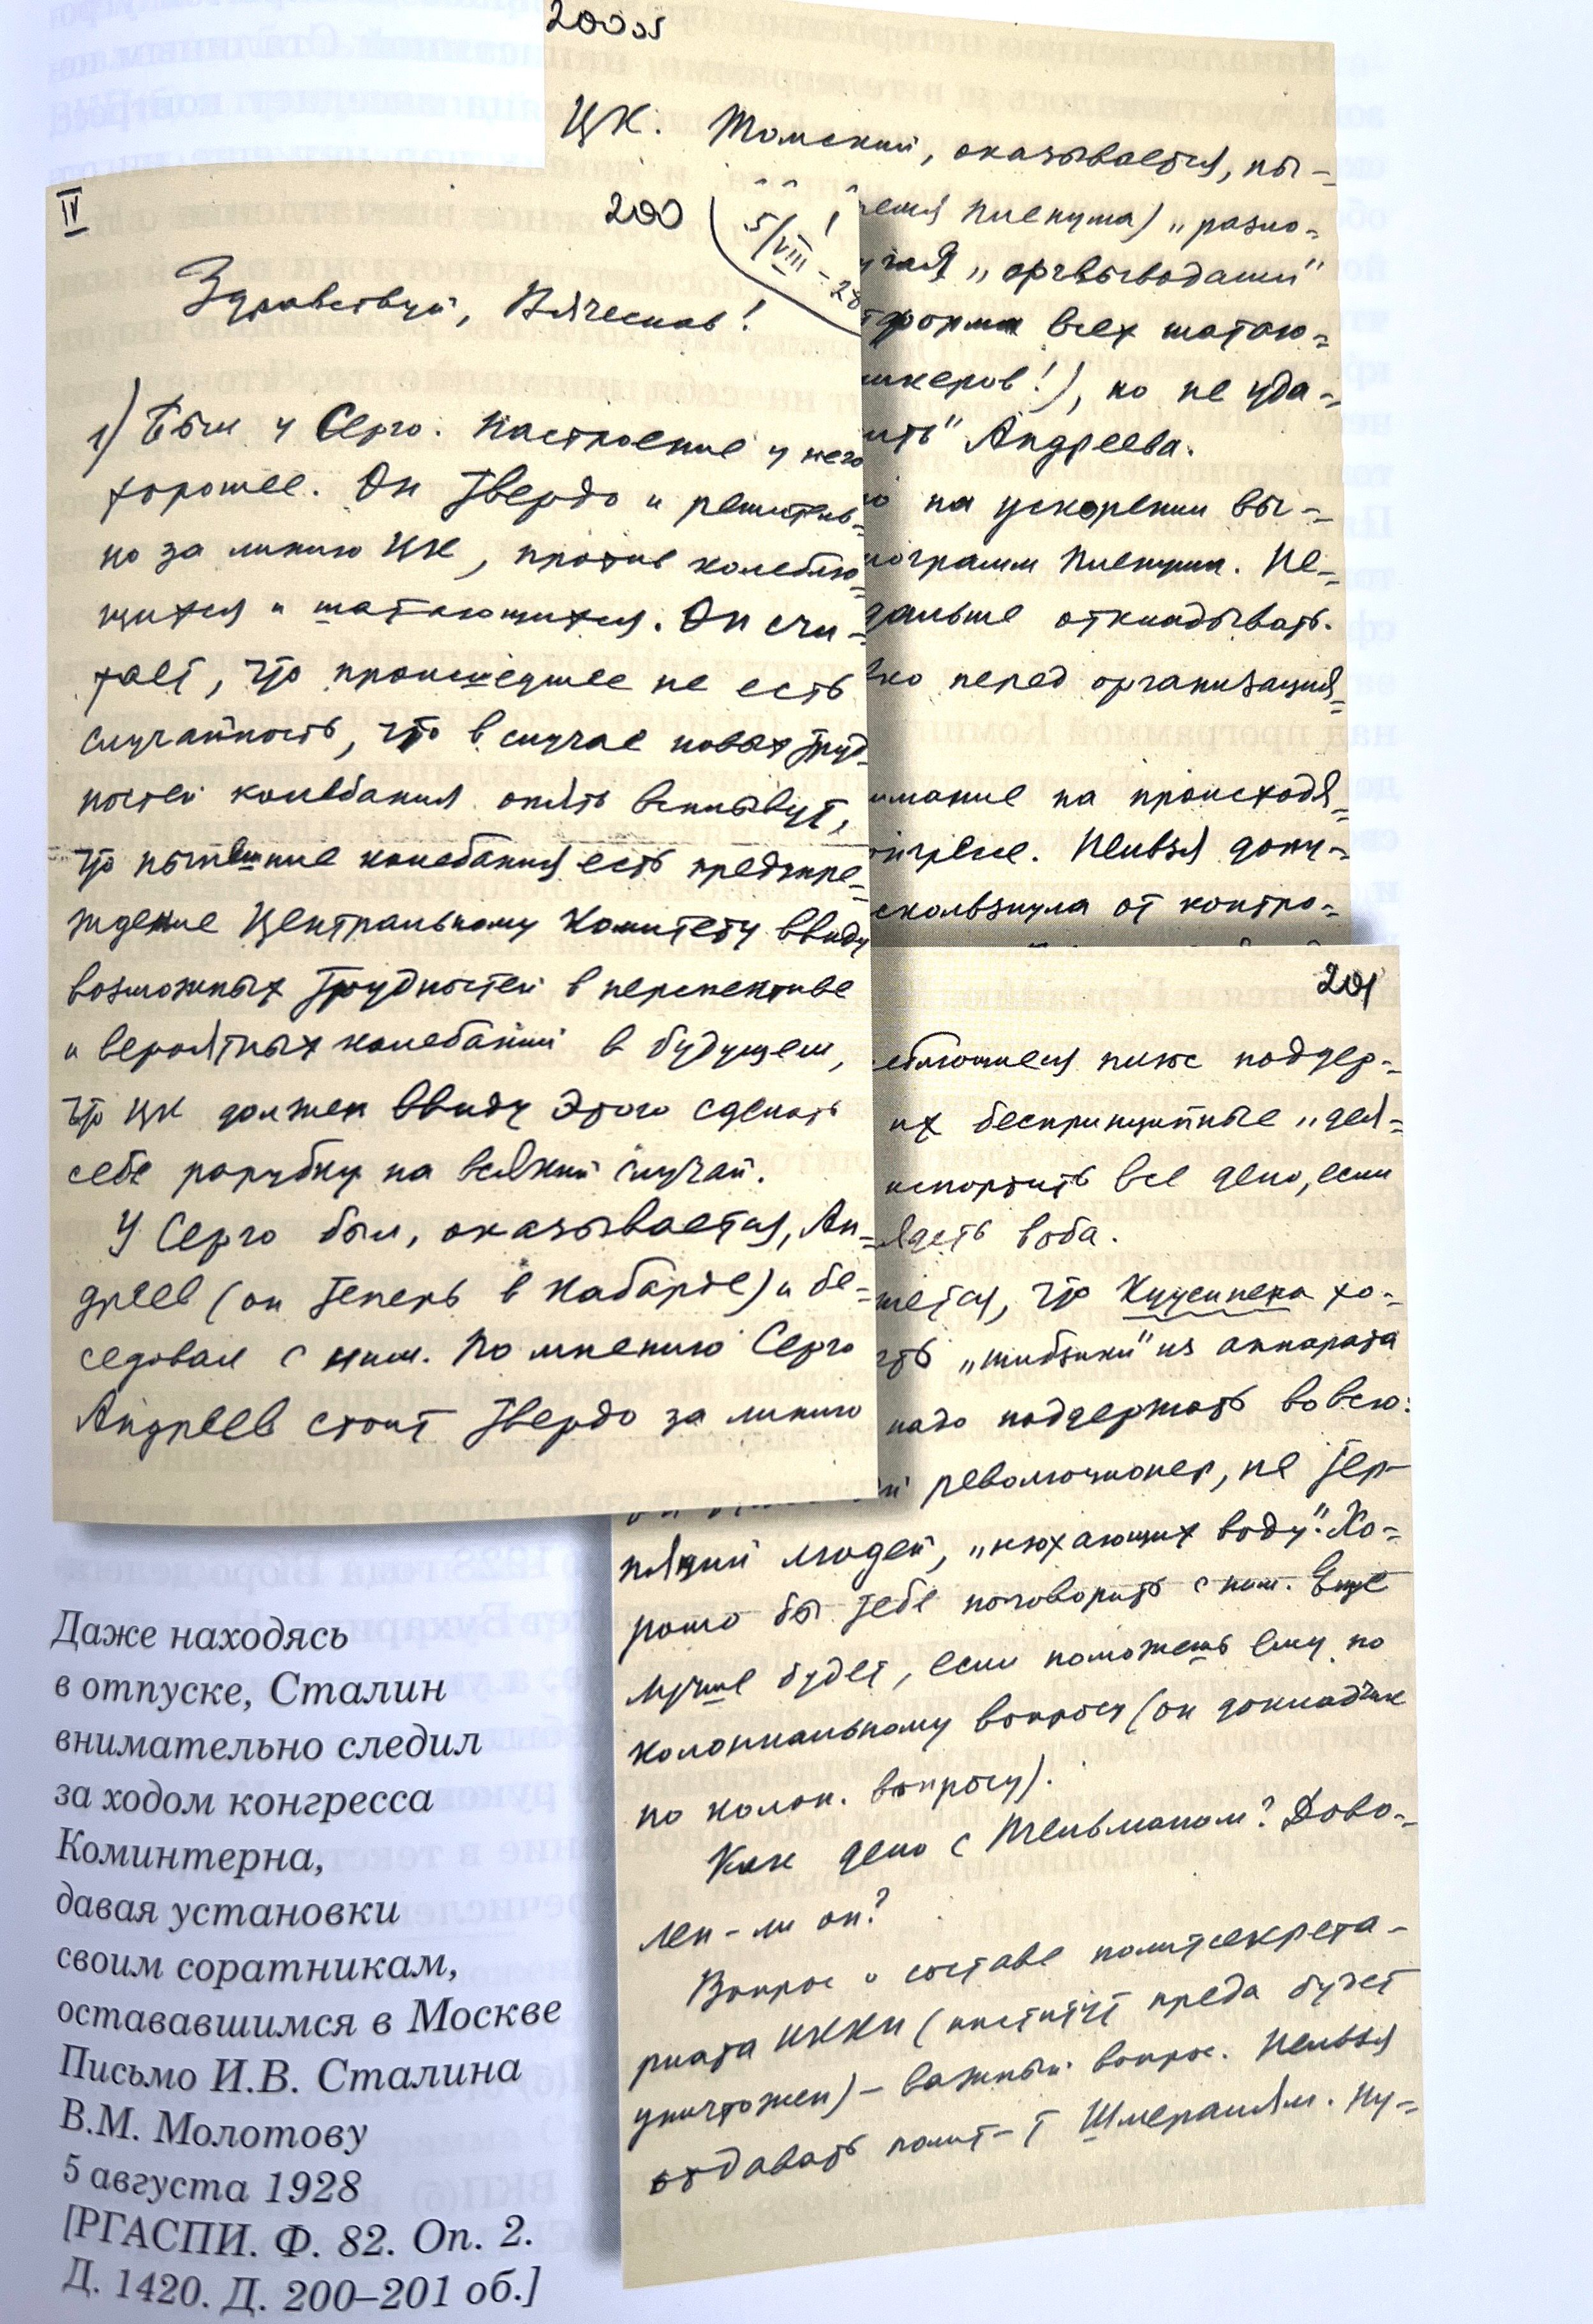 200 об
ЦК. Томский, оказывается, пы-
Пленума) „разло-
„оргвыводами"
всех шатаю-
!), но не уда-
Андреева.
на ускорении вы-
Пленума. Не-
дальше откладывать.
перед организация-
на происходя-
Нельзя допу-
от контро-
IV
200
5/VIII-28
Здравствуй, Вячеслав!
1) Был у Серго. Настроение у него
хорошее. Он твердо и решитель-
но за линию ЦК, против колеблю-
щихся и шатающихся. Он счи-
тает, что происшедшее не есть
случайность, что в случае новых труд-
ностей колебания опять всплывут,
что нынешние колебания есть предупре-
ждение Центральному Комитету ввиду
возможных трудностей в перспективе
и вероятных колебаний в будущем,
что ЦК должен ввиду этого сделать
себе зарубку на всякий случай.
У Серго был, оказывается, Ан-
дреев (он теперь в Кабарде) и бе-
седовал с ним. По мнению Серго
Андреев стоит твердо за линию
201
подер-
их беспринципные „дея-
испортить все дело, если
в оба.
что Куусинена хо-
„шибзики" из аппарата
надо поддержать вовсю:
революционер, не тер-
пящий людей, „нюхающих воду". Хо-
рошо бы тебе поговорить с ним. Еще
лучше будет, если поможешь ему по
колониальному вопросу (он докладчик
по колон. вопросу).
Как дело с Тельманом? Дово-
лен-ли он?
Вопрос о составе политсекрета-
риата ИККИ (институт преда будет
уничтожен) – важный вопрос. Нельзя
отдавать полит-т Шмералям. Ну-
Даже находясь
в отпуске, Сталин
внимательно следил
за ходом конгресса
Коминтерна,
давая установки
своим соратникам,
остававшимся в Москве
Письмо И.В. Сталина
В.М. Молотову
5 августа 1928
[РГАСПИ. Ф. 82. Оп. 2.
Д. 1420. Д. 200–201 об.]